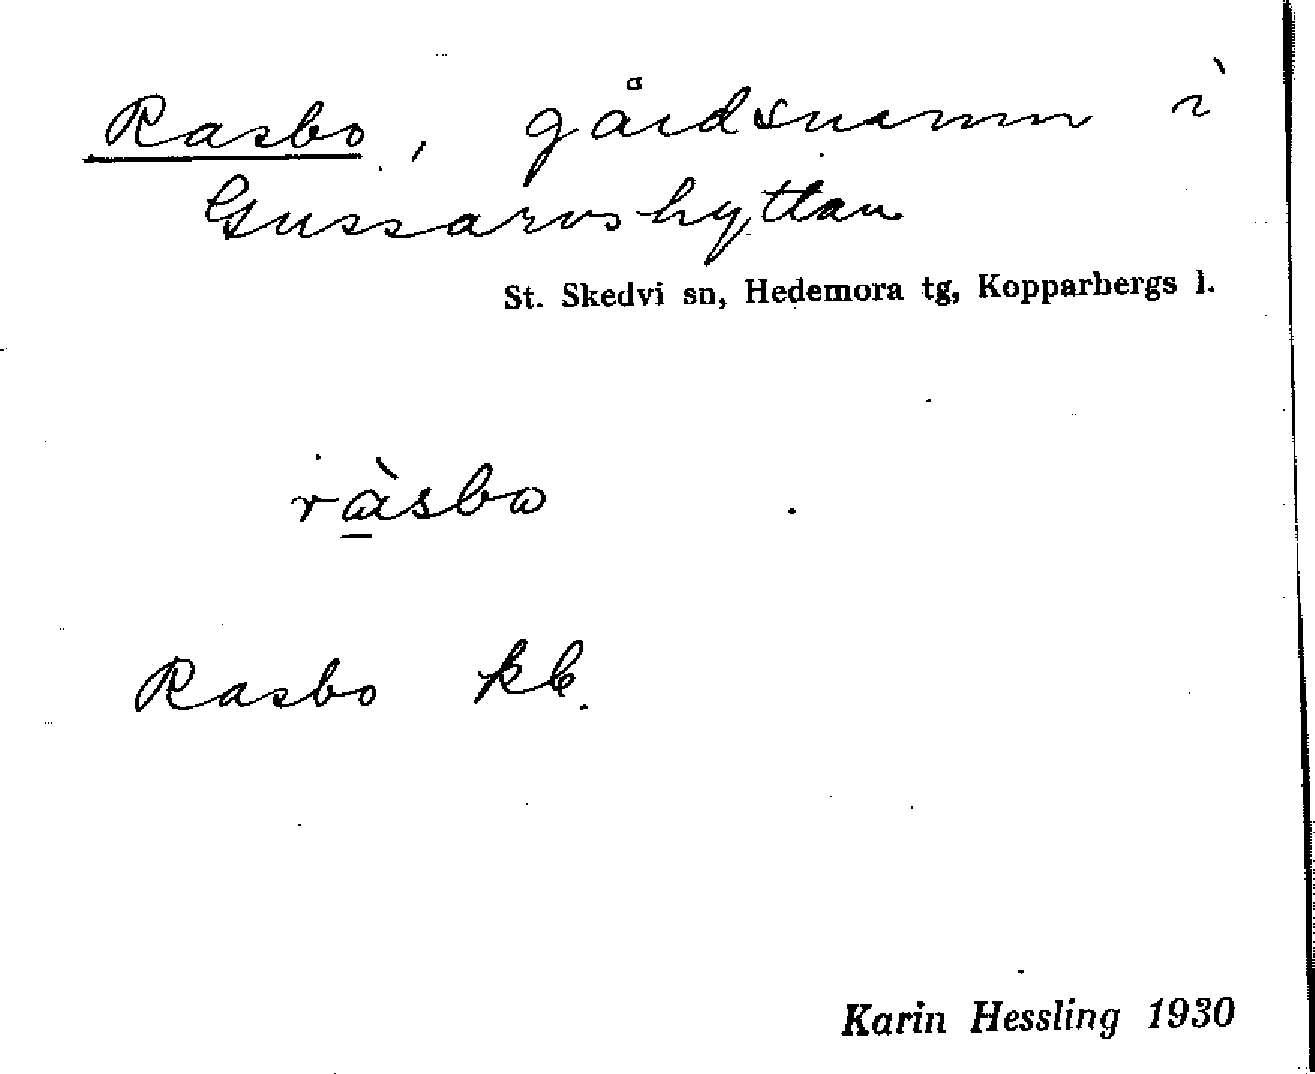 Rasbo, gårdsnamn i
Gussarvshyttan
St. Skedvi sn, Hedemora tg, Kopparbergs l.
ràsbo
Rasbo kb.
Karin Hessling 1930